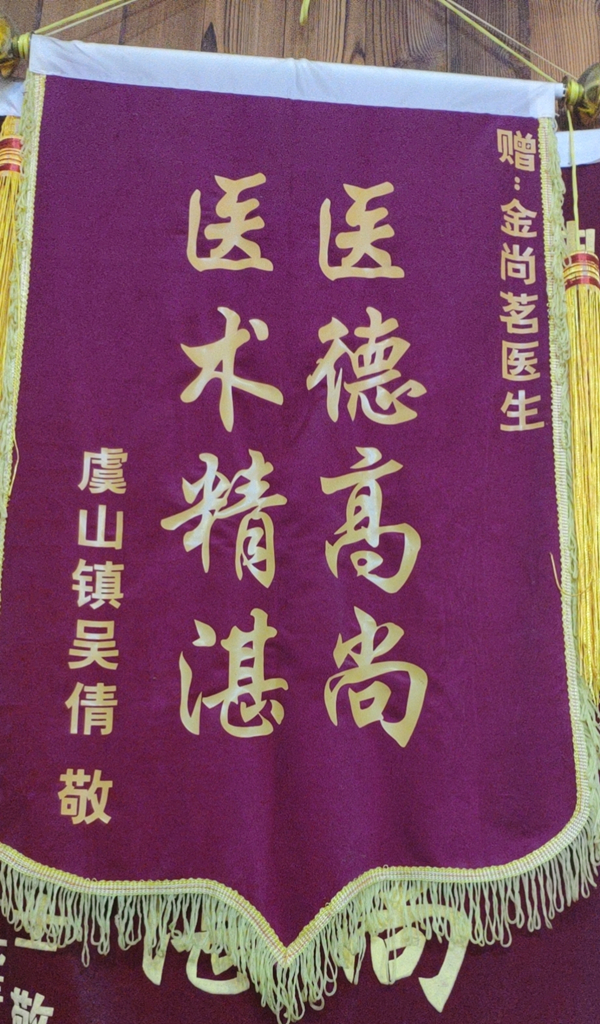 赠：金尚茗医生
医德高尚
医术精湛
虞山镇吴倩 敬
敬